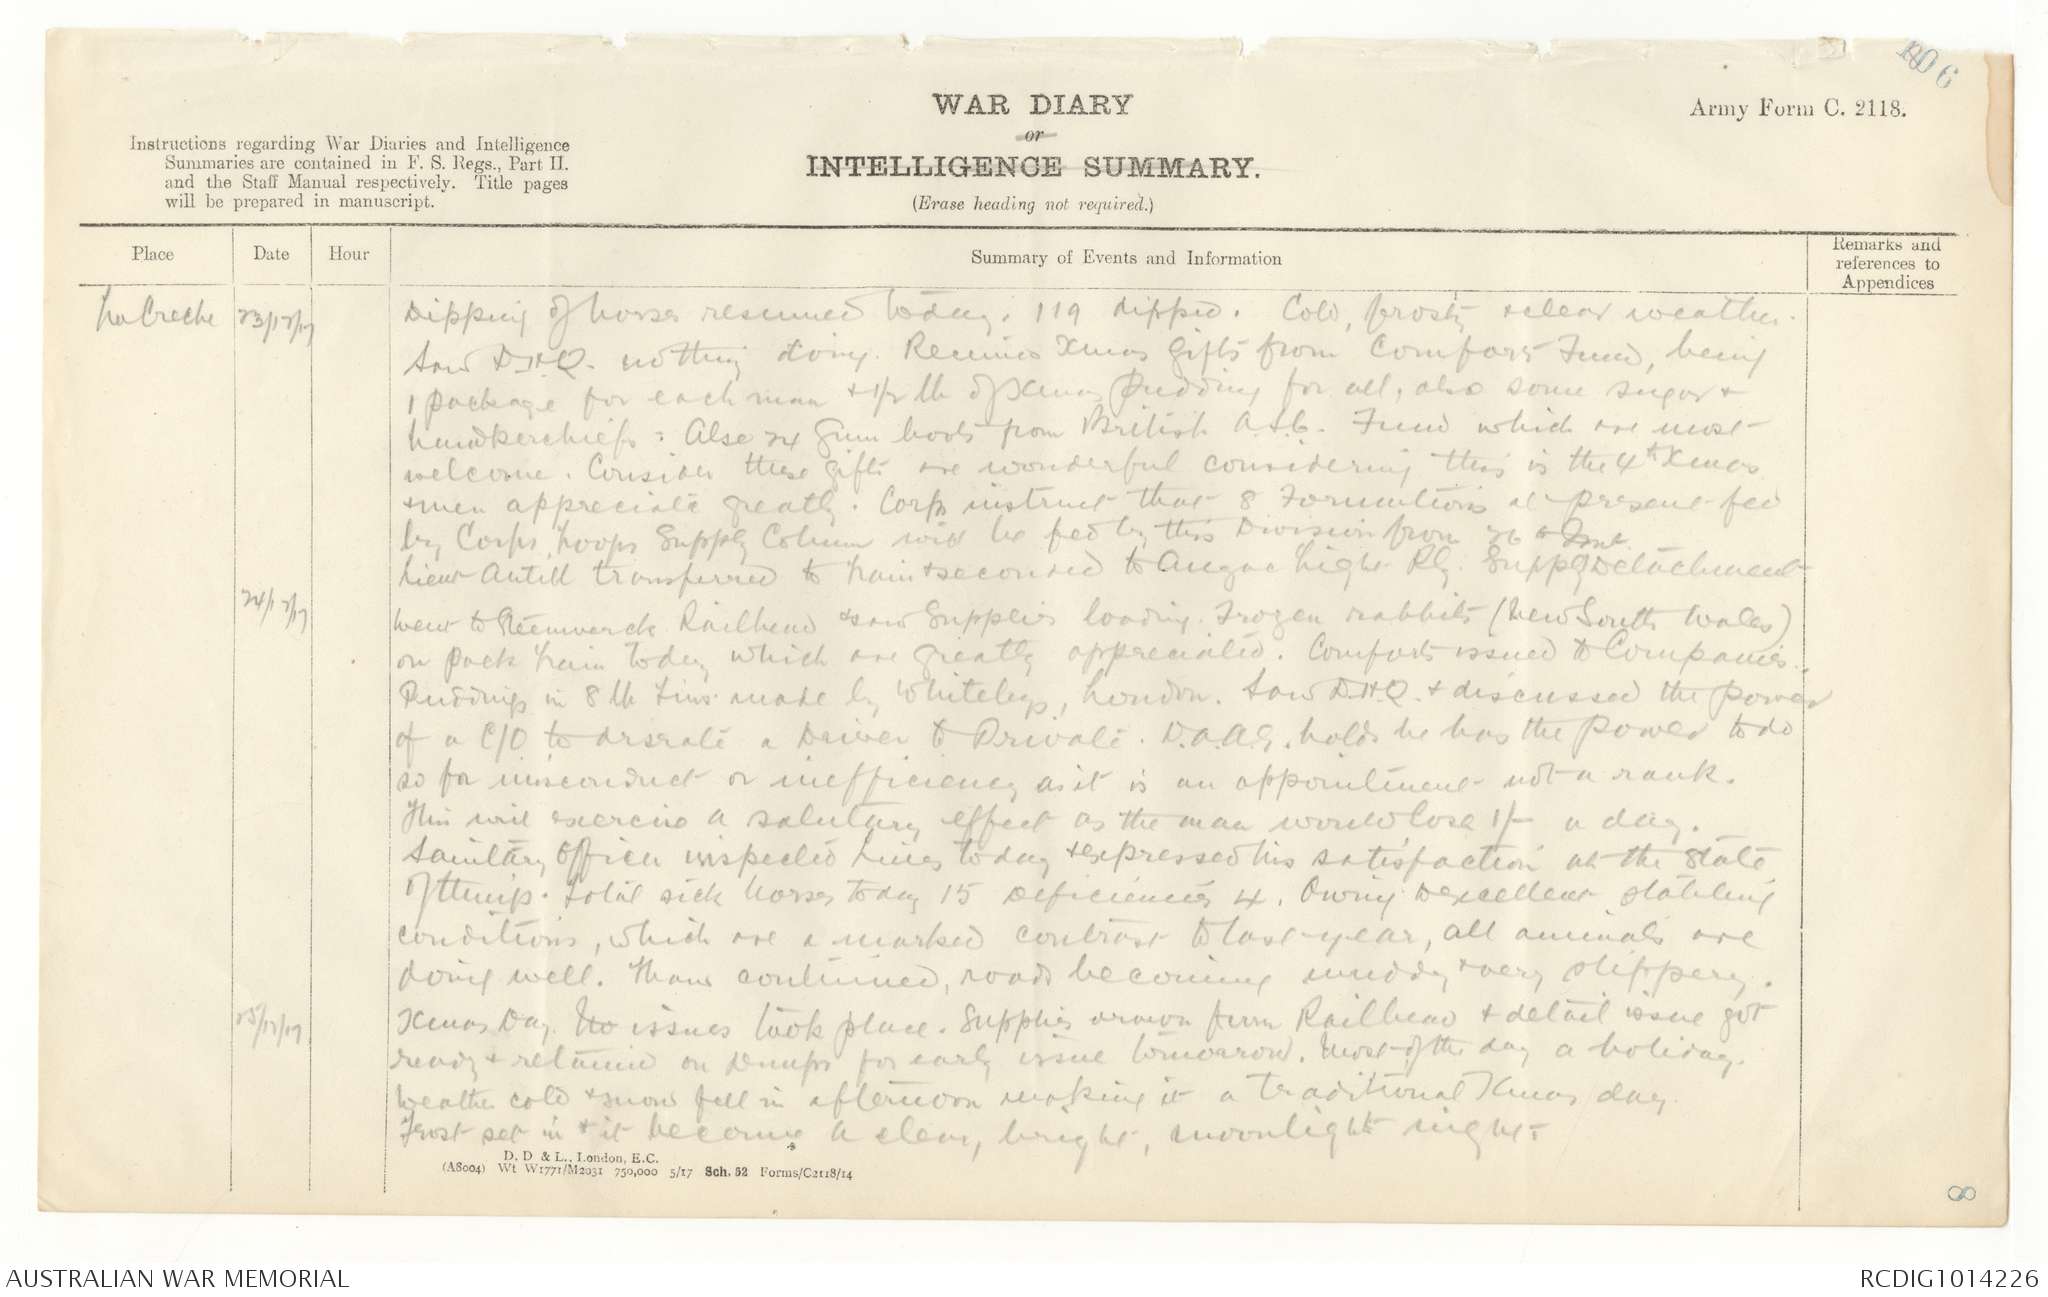 106
WAR DIARY
or
INTELLIGENCE SUMMARY.
(Erase heading not required.)
Army Form C. 2118.
Instructions regarding War Diaries and Intelligence
Summaries are contained in F. S. Regs., Part II.
and the Staff Manual respectively. Title pages
will be prepared in manuscript.
Place
Date
Hour
Summary of Events and Information
Remarks and
references to
Appendices
La Creche
23/12/17
Dipping of horses resumed today. 119 dipped. Cold, frosty & clear weather.
Saw D.H.Q. nothing doing. Received Xmas gifts from Comforts Fund, being
1 package for each man & 1/2 lb of Xmas pudding for all, also some sugar &
handkerchiefs. Also 24 gum boots from British A.S.C. Fund which are most
welcome. Consider these gifts are wonderful considering this is the 4th Xmas
& men appreciate greatly. Corps instruct that 8 Formations at present fed
by Corps Troops Supply Column will be fed by this Division from 26th
Lieut Antill transferred to Train & seconded to Anzac Light Rly. Supply Detachment
24/12/17
Went to Steenwerck Railhead & saw Supplies loading. Frozen rabbits (New South Wales)
on pack train today which are greatly appreciated. Comforts issued to Companies.
Puddings in 8 lb tins made by Whiteleys, London. Saw D.H.Q. & discussed the power
of a C/O to disrate a Driver to Private. D.A.A.G. holds he has the power to do
so for misconduct or inefficiency as it is an appointment not a rank.
This will exercise a salutary effect as the man would lose 1/- a day.
Sanitary Officer inspected lines today & expressed his satisfaction at the state
of things. Total sick horses today 15 deficiencies 4. Owing to excellent stabling
conditions, which are a marked contrast to last year, all animals are
doing well. Thaw continued, roads becoming muddy & very slippery.
25/12/17
Xmas Day. No issues took place. Supplies drawn from Railhead & detail issue got
ready & retained on Dumps for early issue tomorrow. Most of the day a holiday.
Weather cold & snow fell in afternoon making it a traditional Xmas day.
Frost set in & it became a clear, bright, moonlight night.
D. D & L., London, E.C.
(A8004) Wt W1771/M2031 750,000 5/17 Sch. 52 Forms/C2118/14
8
AUSTRALIAN WAR MEMORIAL
RCDIG1014226